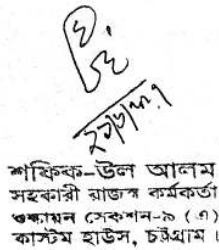 শফিক-উল আলম
সহকারী রাজস্ব কর্মকর্তা
শুল্কায়ন সেকশন-৯ (এ)
কাস্টম হাউস, চট্টগ্রাম।